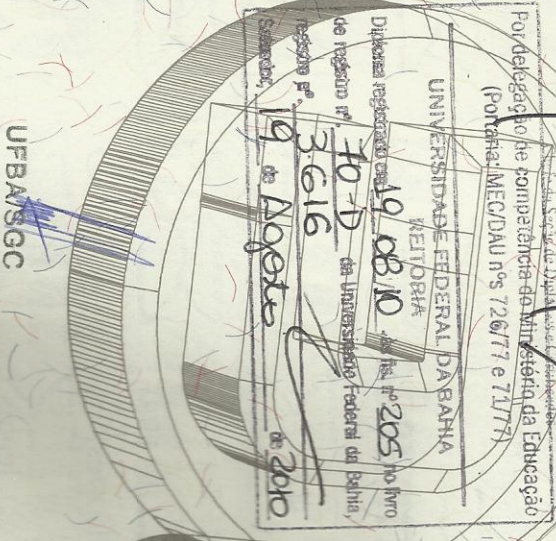 Por delegação de competência do Ministério da Educação
(Portaria: MEC/DAU nºs 726/77 e 71/77)
UNIVERSIDADE FEDERAL DA BAHIA
REITORIA
Diploma registrado em 19.08.10 às fls. nº 205 no livro
de registro nº 70-D da Universidade Federal da Bahia,
registro nº 3.616
Salvador, 19 de Agosto de 2010
UFBA/SGC